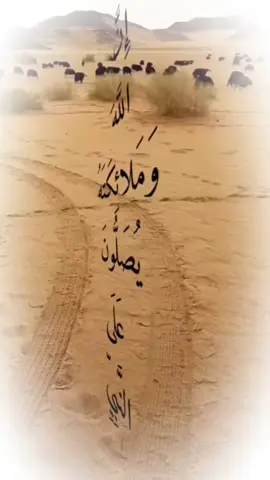 إِنَّ
اللَّهَ
وَمَلَائِكَتَهُ
يُصَلُّونَ
عَلَى
النَّبِيِّ